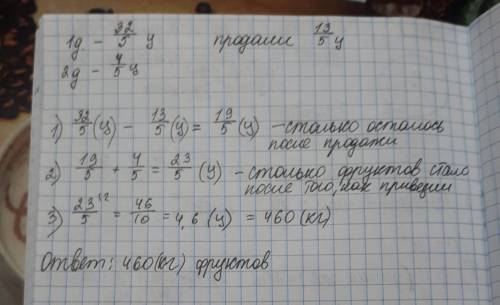 1д – 32/5 ц продали 13/5 ц
2д – 4/5 ц
1) 32/5 (ц) – 13/5 (ц) = 19/5 (ц) – столько осталось
после продажи
2) 19/5 + 4/5 = 23/5 (ц) – столько фруктов стало
после того, как привезли
3) 23/5 ^(2 = 46/10 = 4,6 (ц) = 460 (кг)
Ответ: 460 (кг) фруктов